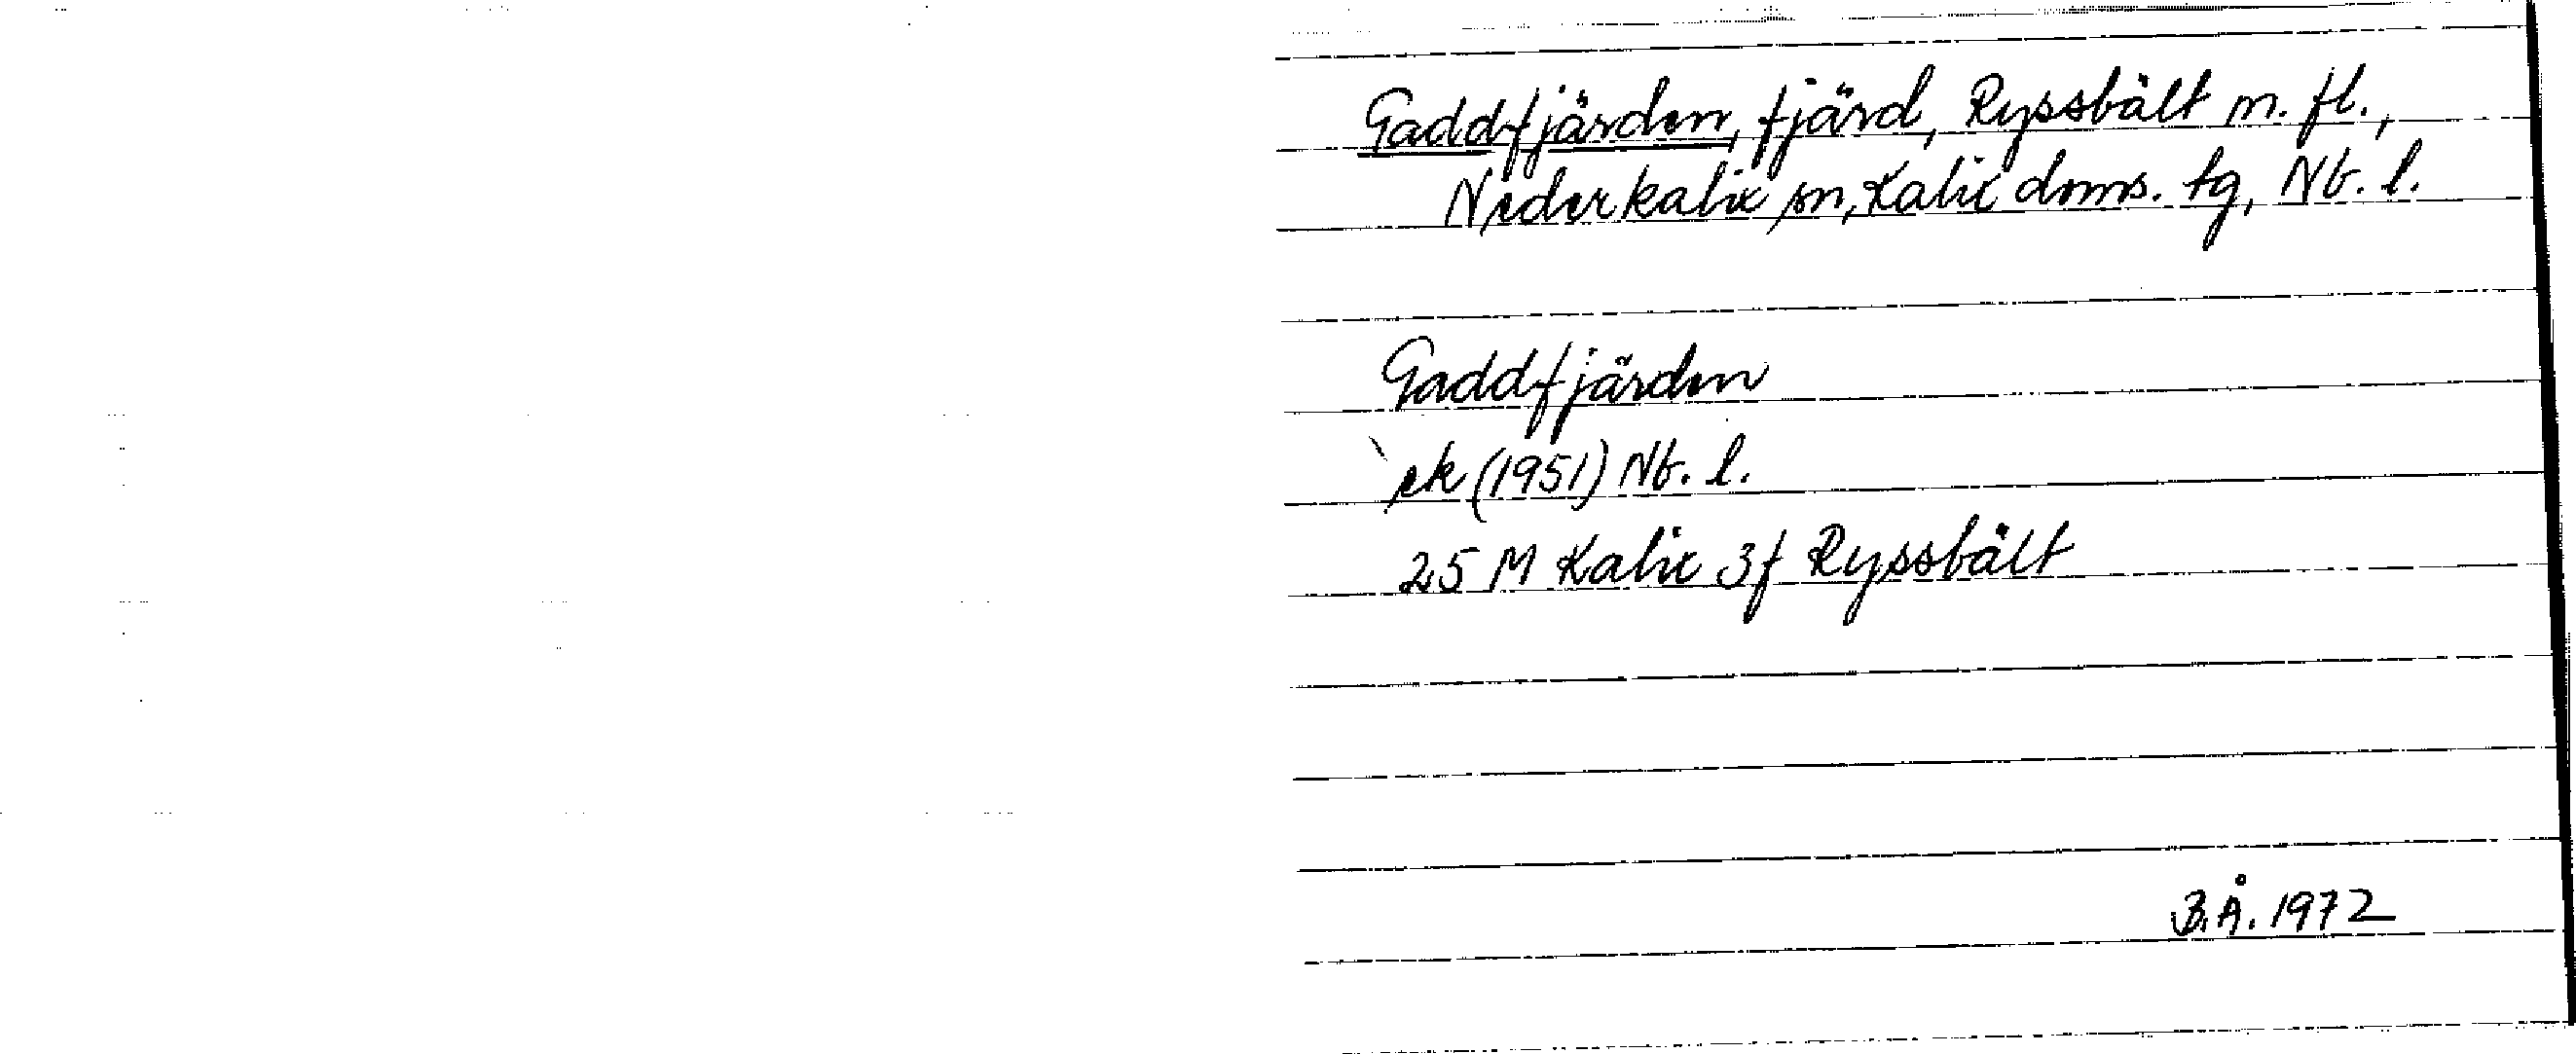 Gaddfjärden, fjärd, Ryssbält m. fl.,
Nederkalix sn, Kalix doms. tg, Nb. l.
Gaddfjärden
ek (1951) Nb. l.
25 M Kalix 3f Ryssbält
B.Å. 1972